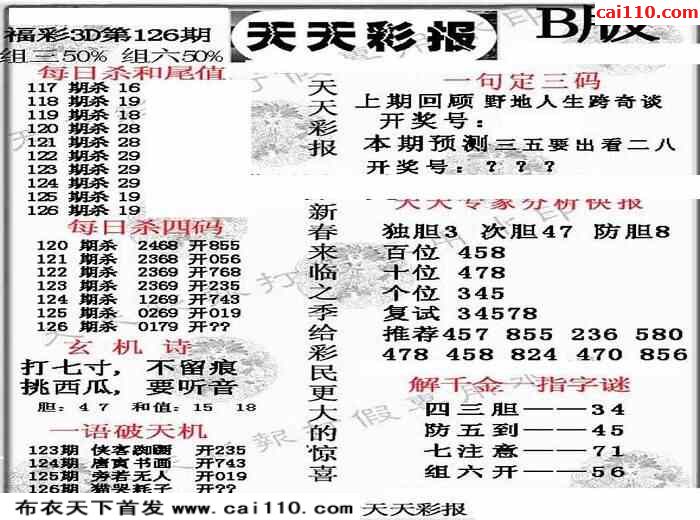 福彩3D第126期
组三50% 组六50%
天天彩报
B版
cai110.com
每日杀和尾值
117 期杀 16
118 期杀 19
119 期杀 18
120 期杀 28
121 期杀 28
122 期杀 29
123 期杀 29
124 期杀 29
125 期杀 19
126 期杀 19
每日杀四码
120 期杀 2468 开855
121 期杀 2368 开056
122 期杀 2369 开768
123 期杀 2369 开235
124 期杀 1269 开743
125 期杀 0269 开019
126 期杀 0179 开??
玄机诗
打七寸，不留痕
挑西瓜，要听音
胆：4 7 和值：15 18
一语破天机
123期 侠客蜘蹰 开235
124期 唐寅书画 开743
125期 旁若无人 开019
126期 猫哭耗子 开??
天天彩报
新春来临之季给彩民更大的惊喜
一句定三码
上期回顾 野地人生跨奇谈
开奖号：
本期预测 三五要出看二八
开奖号：？？？
天天专家分析快报
独胆3 次胆47 防胆8
百位 458
十位 478
个位 345
复试 34578
推荐457 855 236 580
478 458 824 470 856
解千金一指字谜
四三胆——34
防五到——45
七注意——71
组六开——56
布衣天下首发 www.cai110.com 天天彩报